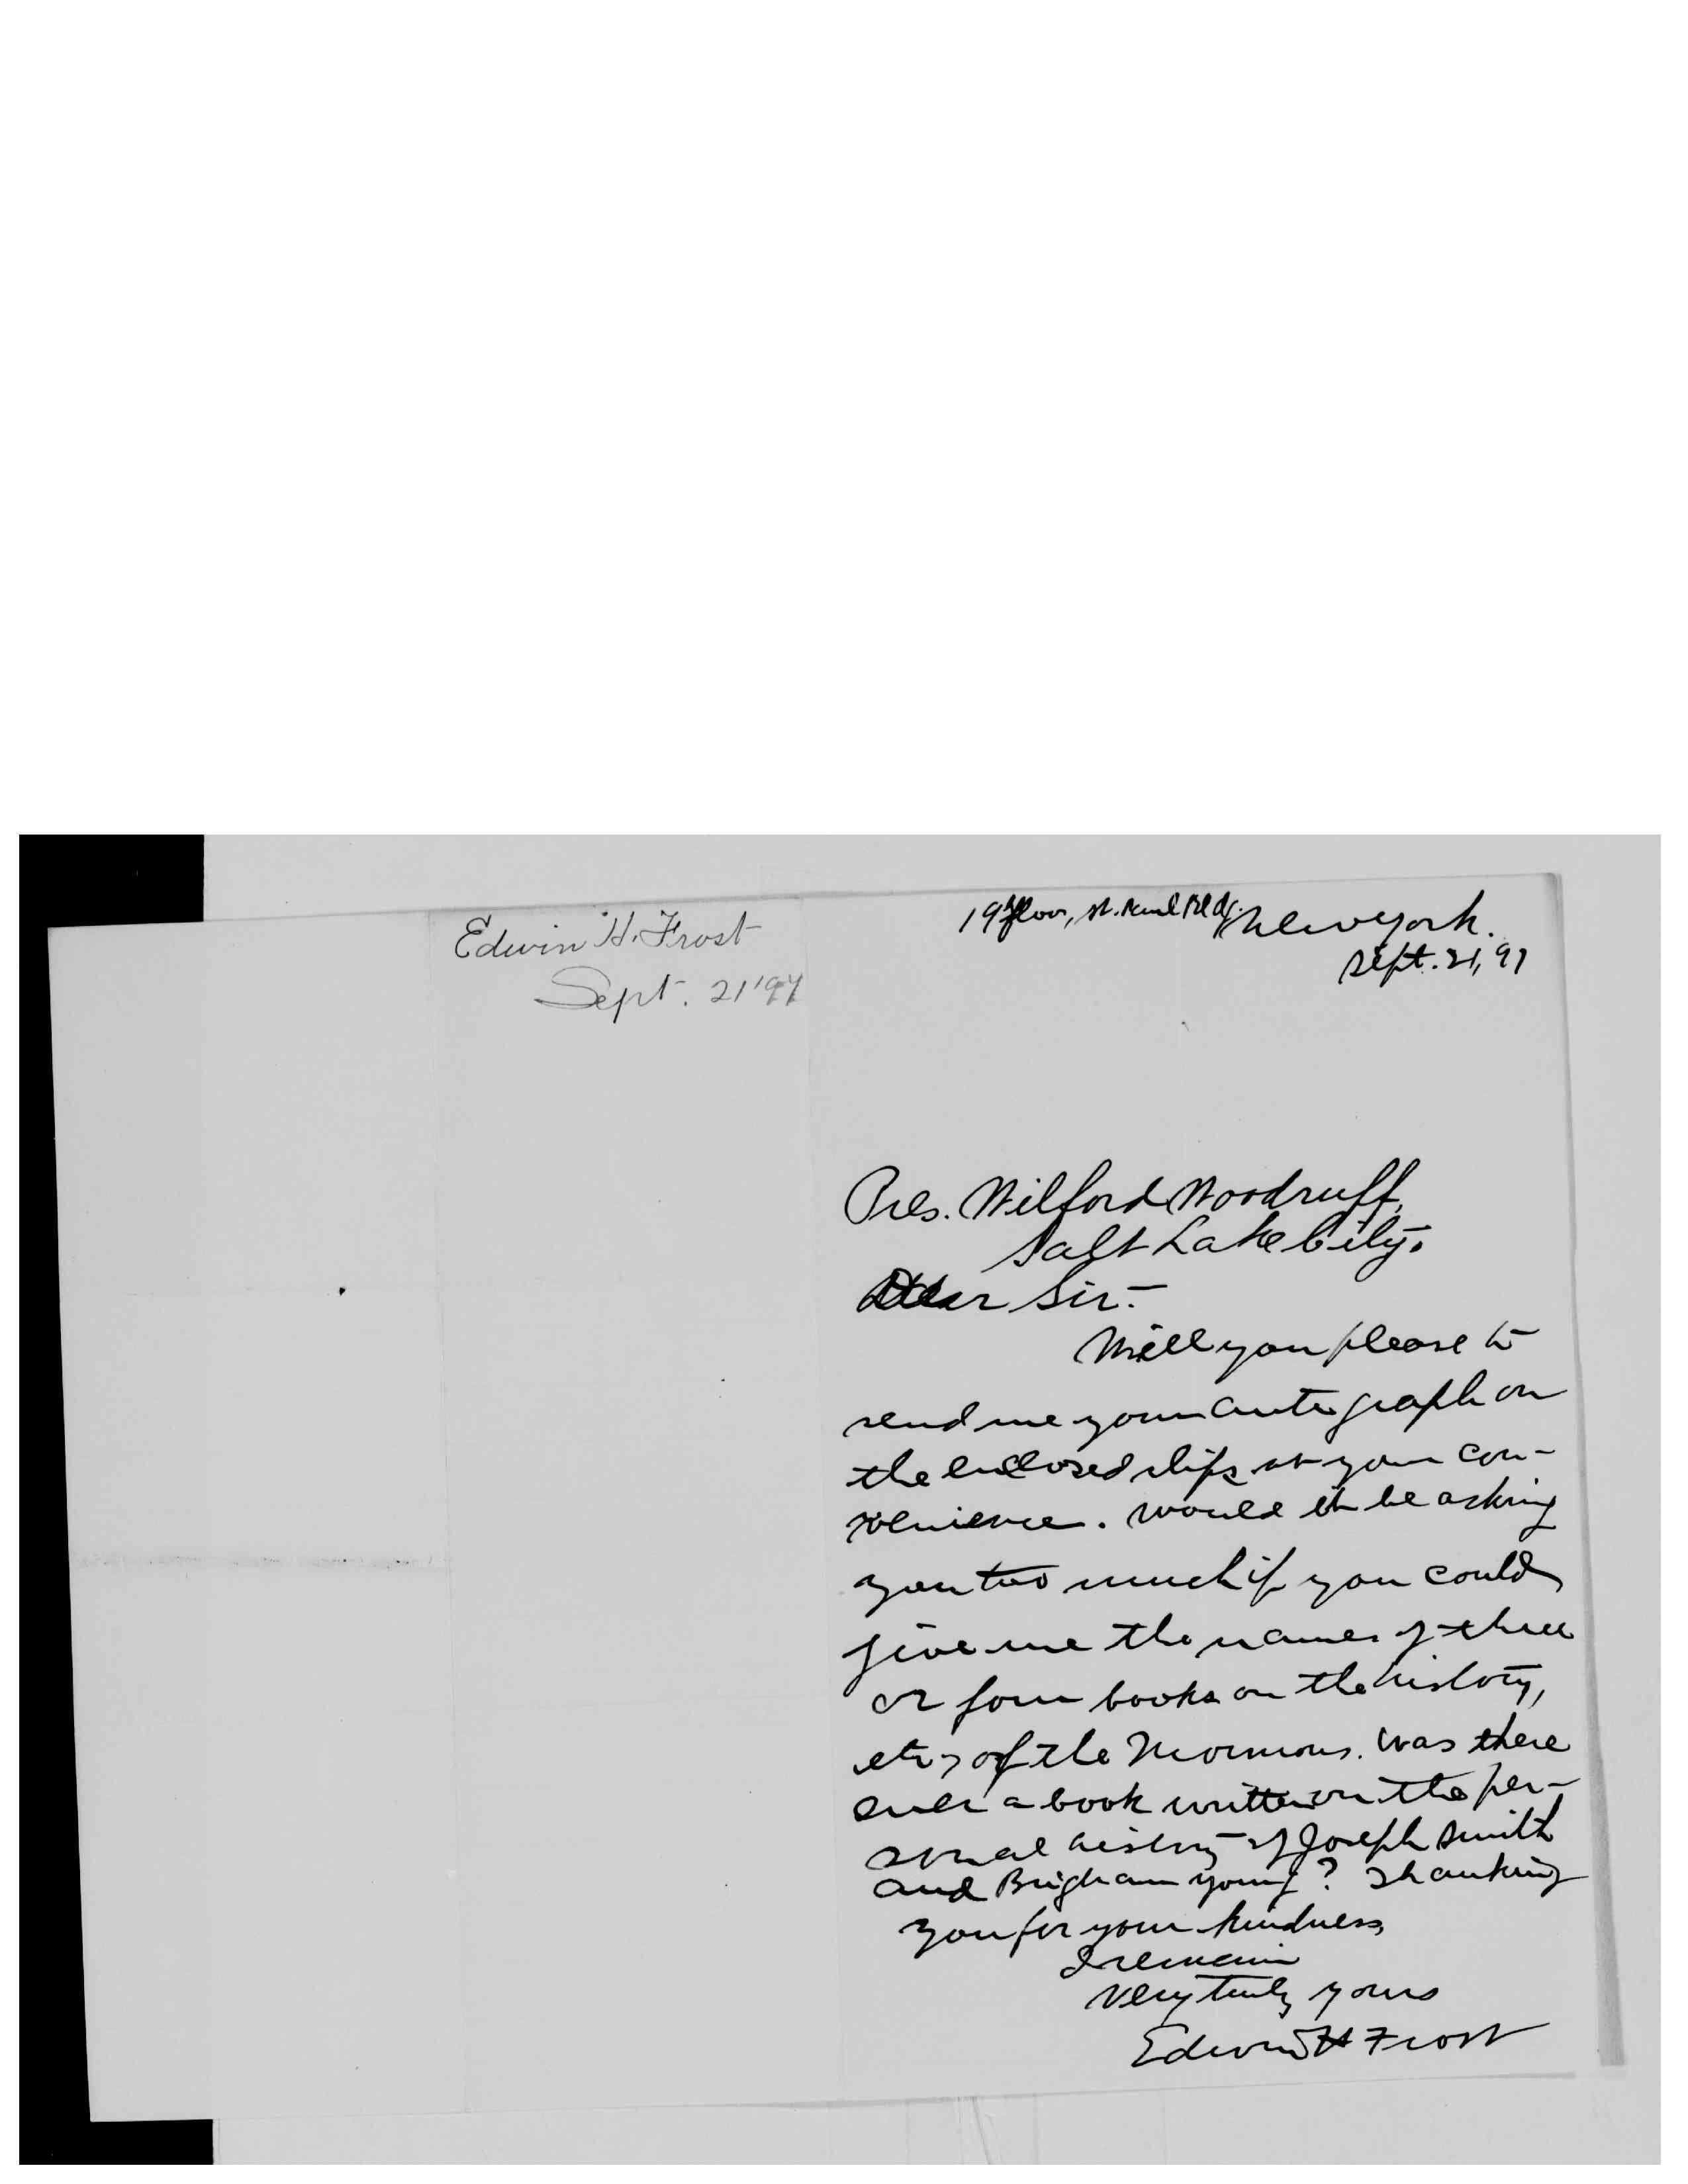 Edwin H. Frost
Sept. 21 '97
19th floor, St. Paul Bldg. New York.
Sept. 21, 97
Pres. Wilford Woodruff,
Salt Lake City.
Dear Sir:-
Will you please to
send me your autograph on
the enclosed slips at your con-
venience. Would it be asking
you too much if you could
give me the names of three
or four books on the history,
etc, of the Mormons. Was there
ever a book written on the per-
sonal history of Joseph Smith
and Brigham Young? Thanking
you for your kindness,
I remain
Very truly yours
Edwin H Frost